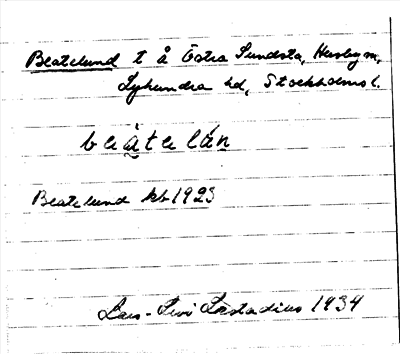 Beatelund t å Östra Sundsta, Husby m,
Lyhundra hd, Stockholms l.
beàtelán
Beatelund kb 1923
Lars-Levi Læstadius 1934